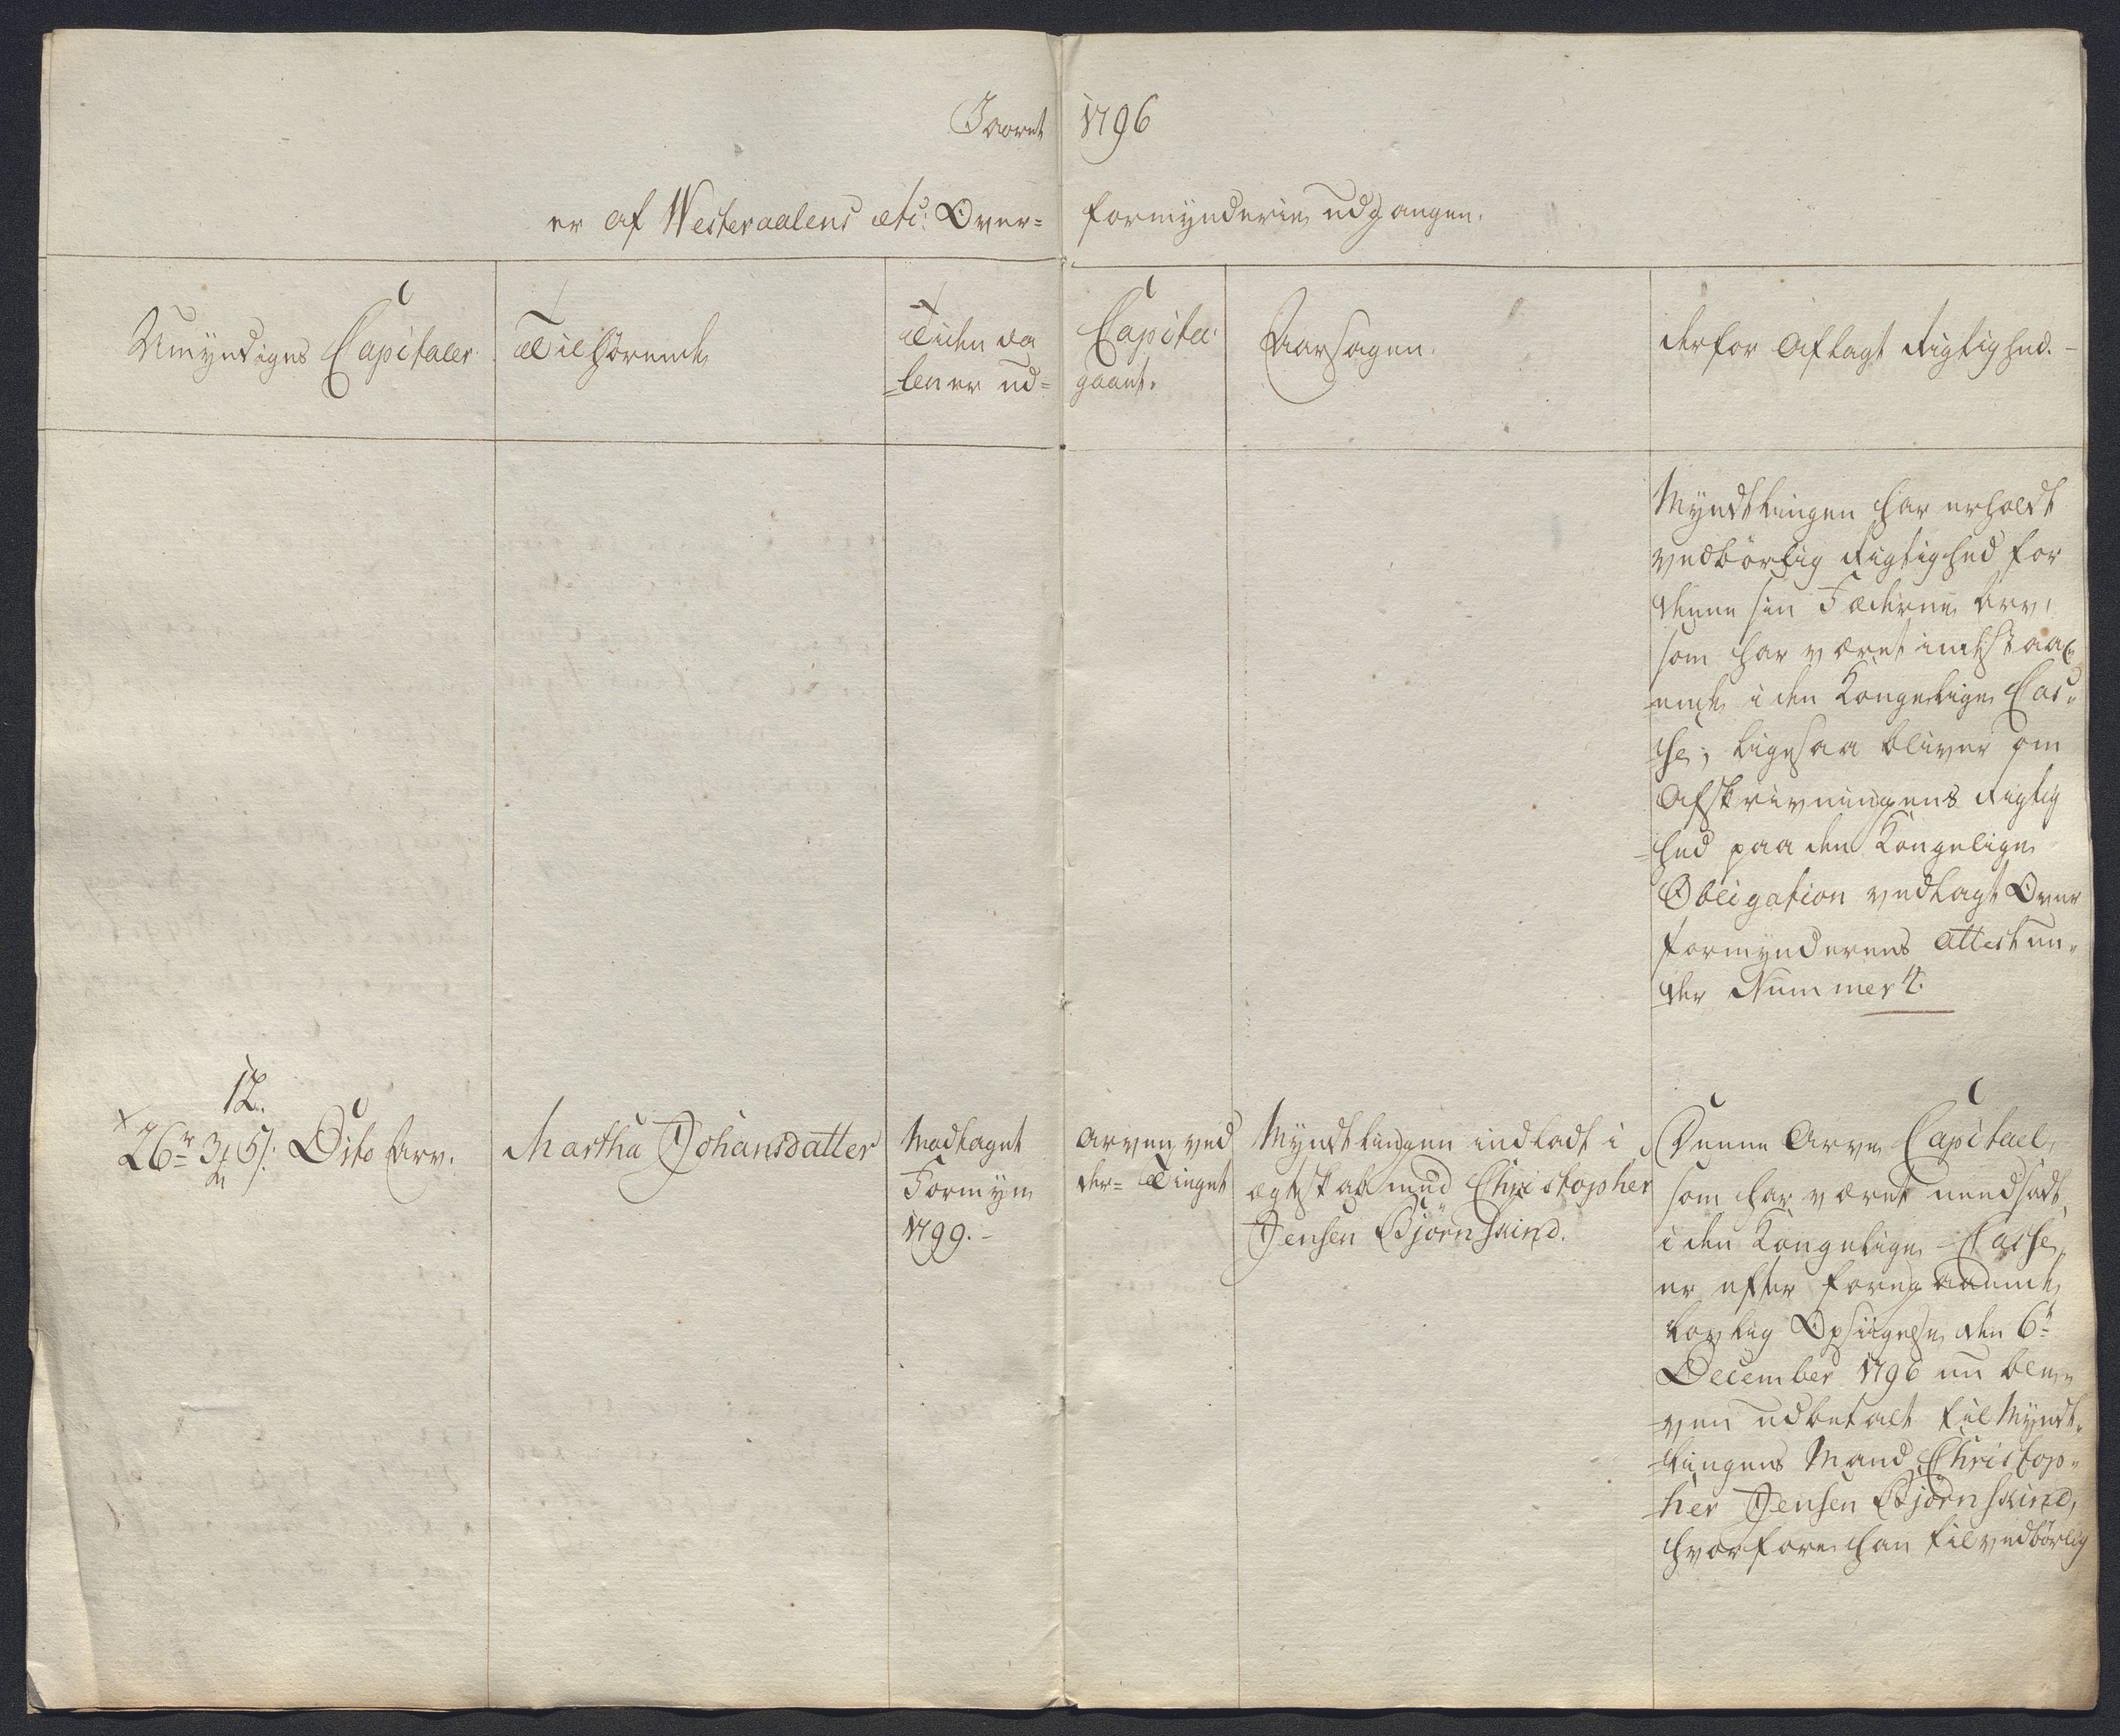 I aaret 1796
er af Westeraalens etc: Over= formynderie udgangen.
Umyndiges Capitaler
Tilhørende
Tiden da Capita-
len er ud= gaaet.
Aarsagen.
derfor Aflagt Rigtighed.
Myndtlingen har erholdt
vedbørlig Rigtighed for
denne sin Fæderne Arv,
som har været indestaa-
ende i den Kongelige Cas-
se; ligesaa bliver om
Afskrivningens Rigtig
hed paa den Kongelige
Obligation vedlagt Over
formynderens Attest un-
der Nummer 4.
12.
26r 3 5/: Dito Arv.
Martha Johansdatter
Modtaget Arven ved
Formyn der= Tinget
1799.-
Myndtlingen indladt i
ægteskab med Christopher
Jensen Bjørnskind.
Denne Arve Capitael,
som har været nedsadt
i den Kongelige Casse,
er efter foregaaende
lovlig Opsiigelse den 6te
December 1796 nu ble-
ven udbetalt til Myndt-
lingens Mand Christop-
her Jensen Bjørnskind,
hvorfore han til vedbørlig